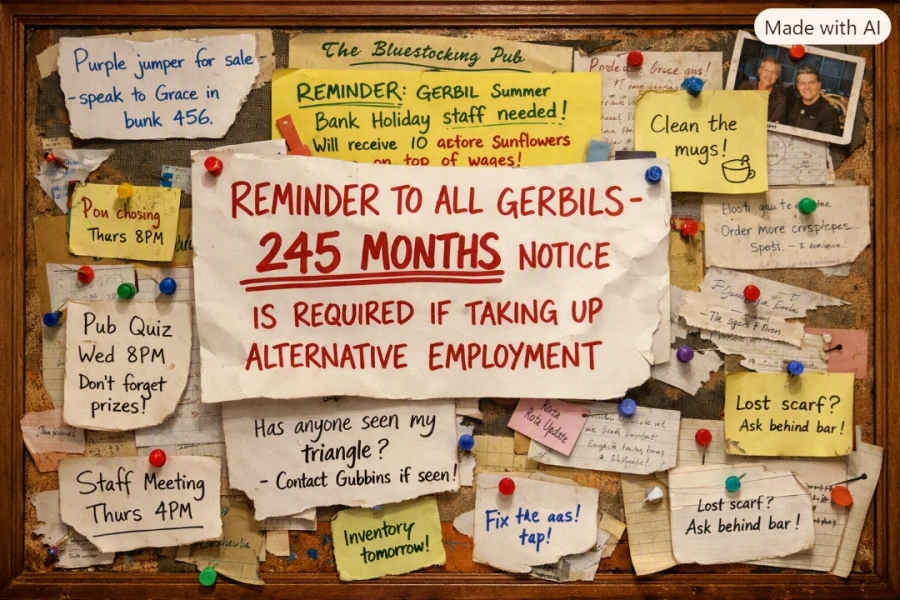 Made with AI
Purple jumper for sale
-speak to Grace in
bunk 456.
The Bluestocking Pub
REMINDER: GERBIL Summer
Bank Holiday staff needed!
Will receive 10 actore Sunflowers
on top of wages!
Clean the
mugs!
REMINDER TO ALL GERBILS-
245 MONTHS NOTICE
IS REQUIRED IF TAKING UP
ALTERNATIVE EMPLOYMENT
Pou chosing
Thurs 8PM
Order more
Pub Quiz
Wed 8PM
Don't forget
prizes!
Has anyone seen my
triangle?
- Contact Gubbins if seen!
Rota
Rota Update
Lost scarf?
Ask behind bar!
Staff Meeting
Thurs 4PM
Inventory
tomorrow!
Fix the aas!
tap!
Lost scarf?
Ask behind bar!